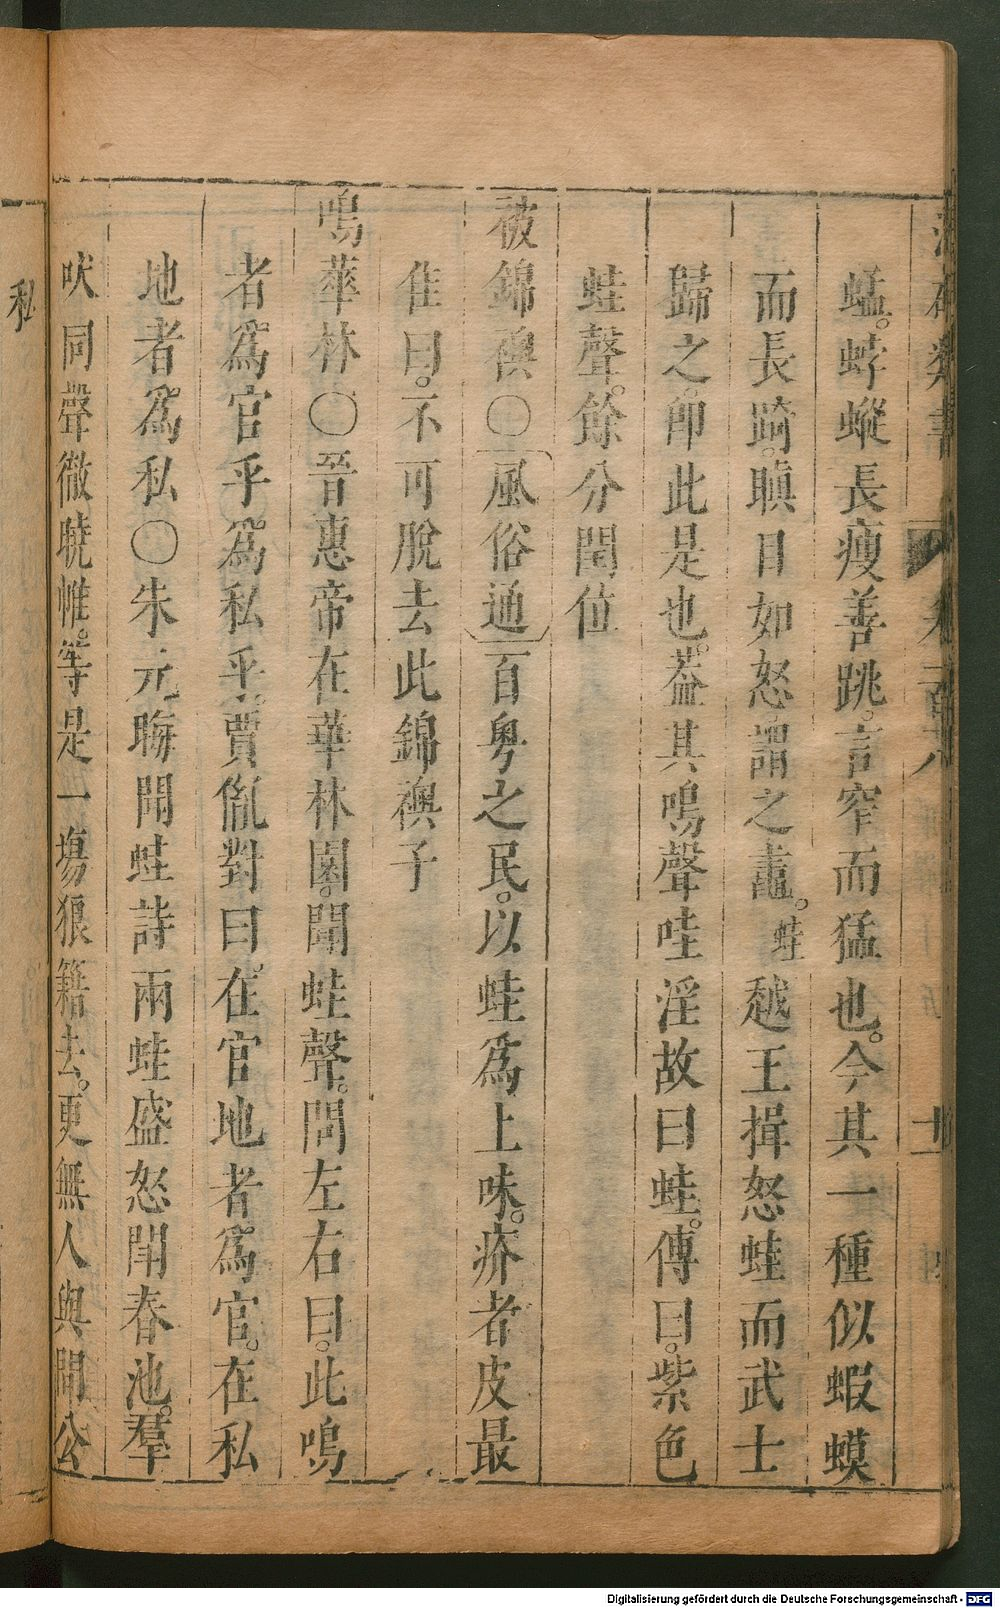 蜢。蛑蟌長瘦善跳。言窄而猛也。今其一種似蝦蟆
而長踦。瞋目如怒。謂之鼃。蛙越王揖怒蛙而武士
歸之。即此是也。葢其鳴聲哇淫故曰蛙。傳曰。紫色
蛙聲。餘分閏位
被錦襖〇風俗通百粤之民。以蛙爲上味。疥者皮最
佳曰。不可脫去此錦襖子
鳴華林〇晉惠帝在華林園。聞蛙聲。問左右曰。此鳴
者爲官乎。爲私乎。賈胤對曰。在官地者。爲官。在私
地者。爲私〇朱元晦聞蛙詩兩蛙盛怒鬧春池。羣
吠同聲徹曉帷。等是一塲狼籍去。更無人與問公
私
Digitalisierung gefördert durch die Deutsche Forschungsgemeinschaft - DFG